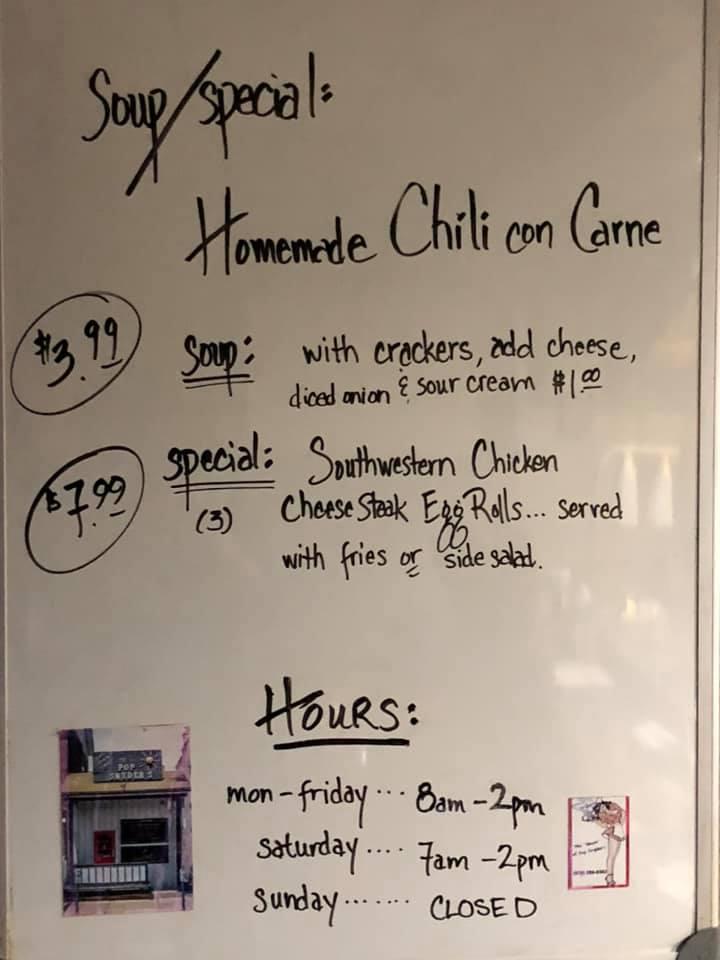 Soup/special:
Homemade Chili con Carne
$3.99 Soup: with crackers, add cheese,
diced onion & sour cream $1.00
$7.99 special: Southwestern Chicken
(3) Cheese Steak Egg Rolls... served
with fries or side salad.
HOURS:
mon-friday... 8am-2pm
saturday.... 7am-2pm
sunday....... CLOSED
POP
SNYDER'S